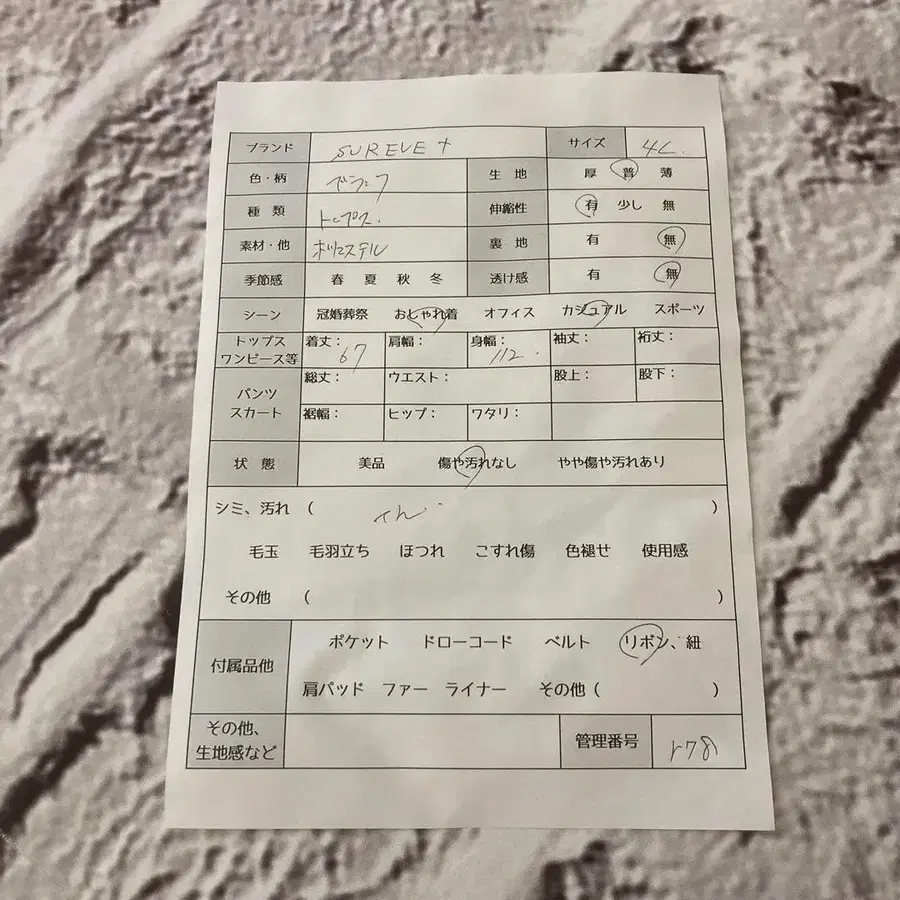 ブランド SUREVE + サイズ 4L.
色・柄 生地 厚 普 薄
種類 トップス. 伸縮性 有 少し 無
素材・他 ポリエステル 裏地 有 無
季節感 春 夏 秋 冬 透け感 有 無
シーン 冠婚葬祭 おしゃれ着 オフィス カジュアル スポーツ
トップス ワンピース等 着丈： 67 肩幅： 身幅： 112. 袖丈： 裄丈：
パンツ スカート 総丈： ウエスト： 股上： 股下：
裾幅： ヒップ： ワタリ：
状態 美品 傷や汚れなし やや傷や汚れあり
シミ、汚れ ( )
毛玉 毛羽立ち ほつれ こすれ傷 色褪せ 使用感
その他 ( )
付属品他 ポケット ドローコード ベルト リボン、紐
肩パッド ファー ライナー その他 ( )
その他、生地感など 管理番号 r78